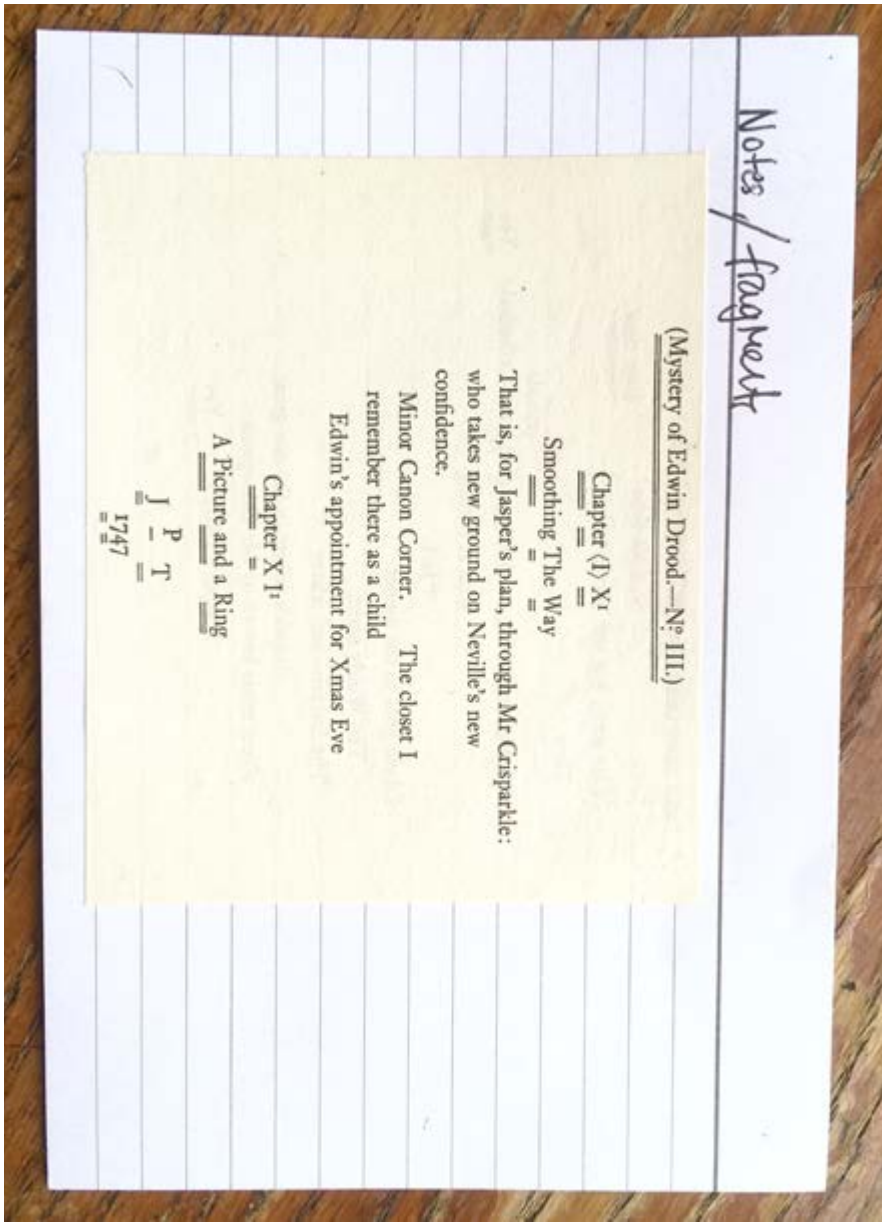 Notes / fragments
(Mystery of Edwin Drood.—Nº III.)
Chapter ⟨I⟩ X¹
Smoothing The Way
That is, for Jasper's plan, through Mr Crisparkle:
who takes new ground on Neville's new
confidence.
Minor Canon Corner. The closet I
remember there as a child
Edwin's appointment for Xmas Eve
Chapter X I¹
A Picture and a Ring
P
J – T
1747